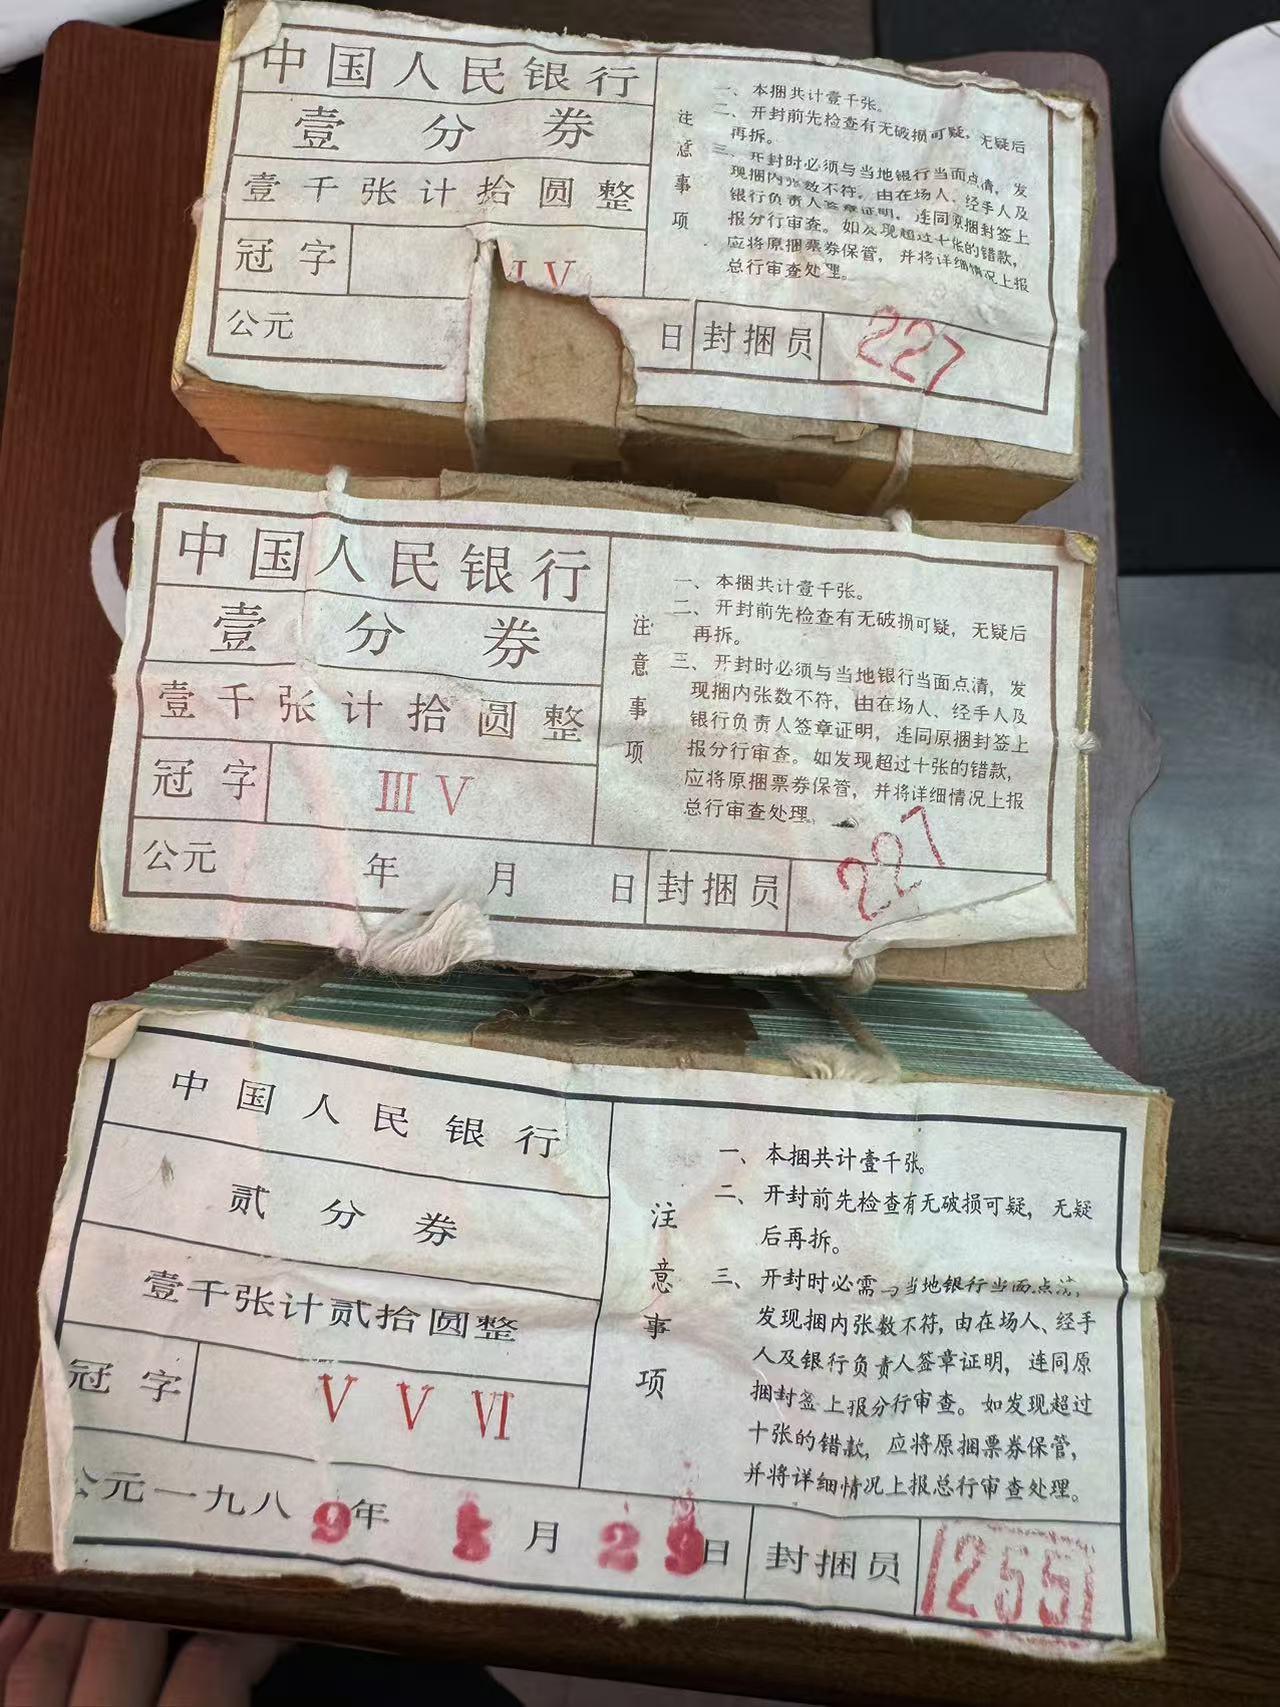 中国人民银行
壹分券
壹千张计拾圆整
冠字 V
公元 日 封捆员 227
注意事项
一、本捆共计壹千张。
二、开封前先检查有无破损可疑，无疑后
再拆。
三、开封时必须与当地银行当面点清，发
现捆内张数不符。由在场人、经手人及
银行负责人签章证明，连同原捆封签上
报分行审查。如发现超过十张的错款，
应将原捆票券保管，并将详细情况上报
总行审查处理。
中国人民银行
壹分券
壹千张计拾圆整
冠字 ⅢⅤ
公元 年 月 日 封捆员 227
注意事项
一、本捆共计壹千张。
二、开封前先检查有无破损可疑，无疑后
再拆。
三、开封时必须与当地银行当面点清，发
现捆内张数不符，由在场人、经手人及
银行负责人签章证明，连同原捆封签上
报分行审查。如发现超过十张的错款，
应将原捆票券保管，并将详细情况上报
总行审查处理。
中国人民银行
贰分券
壹千张计贰拾圆整
冠字 Ⅴ Ⅴ Ⅵ
公元一九八9年 月 2 日 封捆员 1255
注意事项
一、本捆共计壹千张。
二、开封前先检查有无破损可疑，无疑
后再拆。
三、开封时必需 当地银行当面点清，
发现捆内张数不符，由在场人、经手
人及银行负责人签章证明，连同原
捆封签上报分行审查。如发现超过
十张的错款，应将原捆票券保管，
并将详细情况上报总行审查处理。